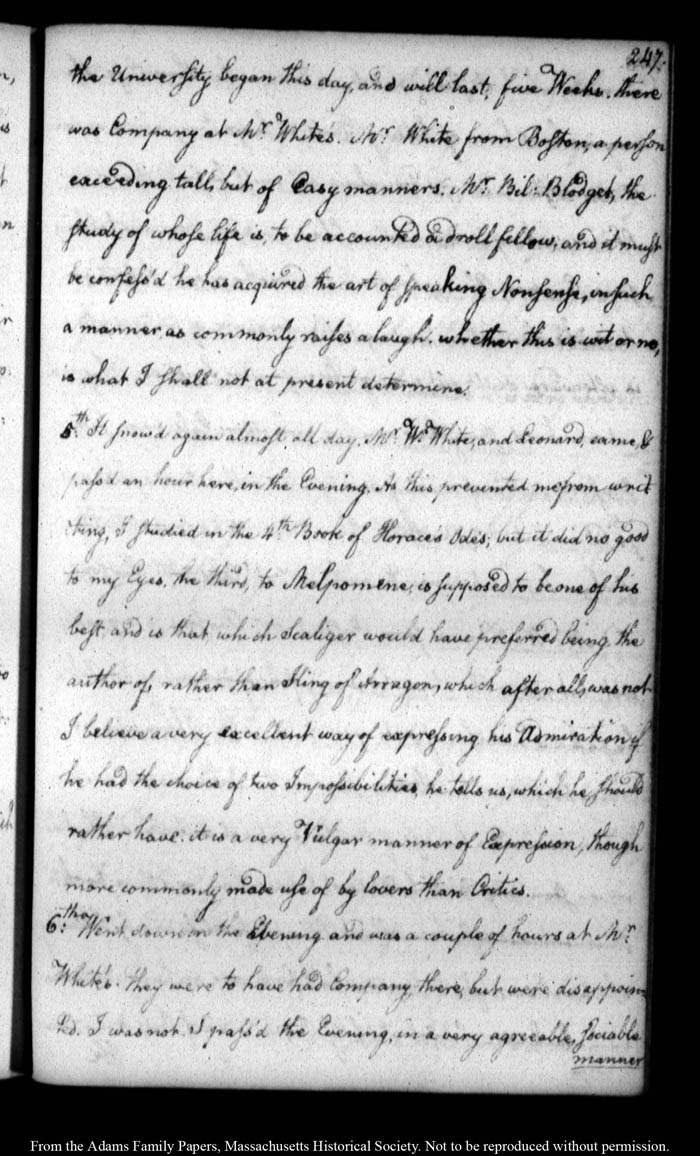 247.
the University began this day, and will last, five Weeks. there
was Company at Mr. White's. Mr. White from Boston, a person
exceeding tall, but of Easy manners. Mr. Bil: Blodget, the
study of whose life is, to be accounted a droll fellow, and it must
be confess'd he has acquired the art of speaking Nonsense, in such
a manner as commonly raises a laugh. whether this is wit or no,
is what I shall not at present determine.
5th. It snow'd again almost all day. Mr. Wm. White, and Leonard, came, &
pass'd an hour here, in the Evening. As this prevented me from writ
ting, I studied in the 4th Book of Horace's Odes; but it did no good
to my Eyes. the third, to Melpomene, is supposed to be one of his
best, and is that, which Scaliger would have preferred being the
author of, rather than King of Arragon, which after all, was not
I believe a very excellent way of expressing his Admiration if
he had the choice of two Impossibilities, he tells us, which he, should
rather have: it is a very Vulgar manner of Expression, though
more commonly made use of by lovers than Critics.
6th. Went down in the Evening and was a couple of hours at Mr.
White's. they were to have had Company, there, but were disappoin
ted. I was not. I pass'd the Evening, in a very agreeable, sociable
manner
From the Adams Family Papers, Massachusetts Historical Society. Not to be reproduced without permission.